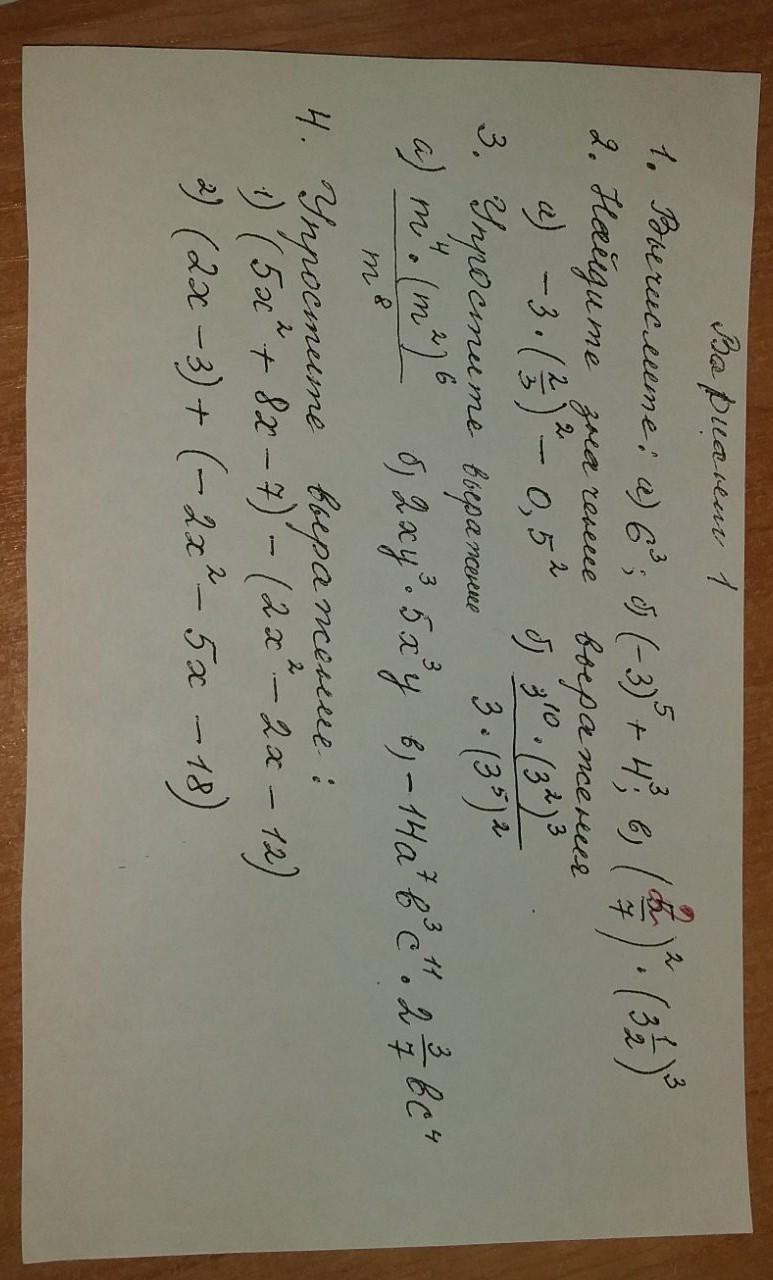 Вариант 1
1. Вычислите: а) 6³; б) (-3)⁵ + 4³; в) (/7)² · (3 1/2)³
2. Найдите значение выражения
а) -3 · (2/3)² - 0,5² б) (3¹⁰ · (3²)³)/(3 · (3⁵)²)
3. Упростите выражение
а) (m⁴ · (m²)⁶)/m⁸ б) 2xy³ · 5x³y в) -14a⁷b³c¹¹ · 2 3/7 bc⁴
4. Упростите выражение:
1) (5x² + 8x - 7) - (2x² - 2x - 12)
2) (2x - 3) + (-2x² - 5x - 18)